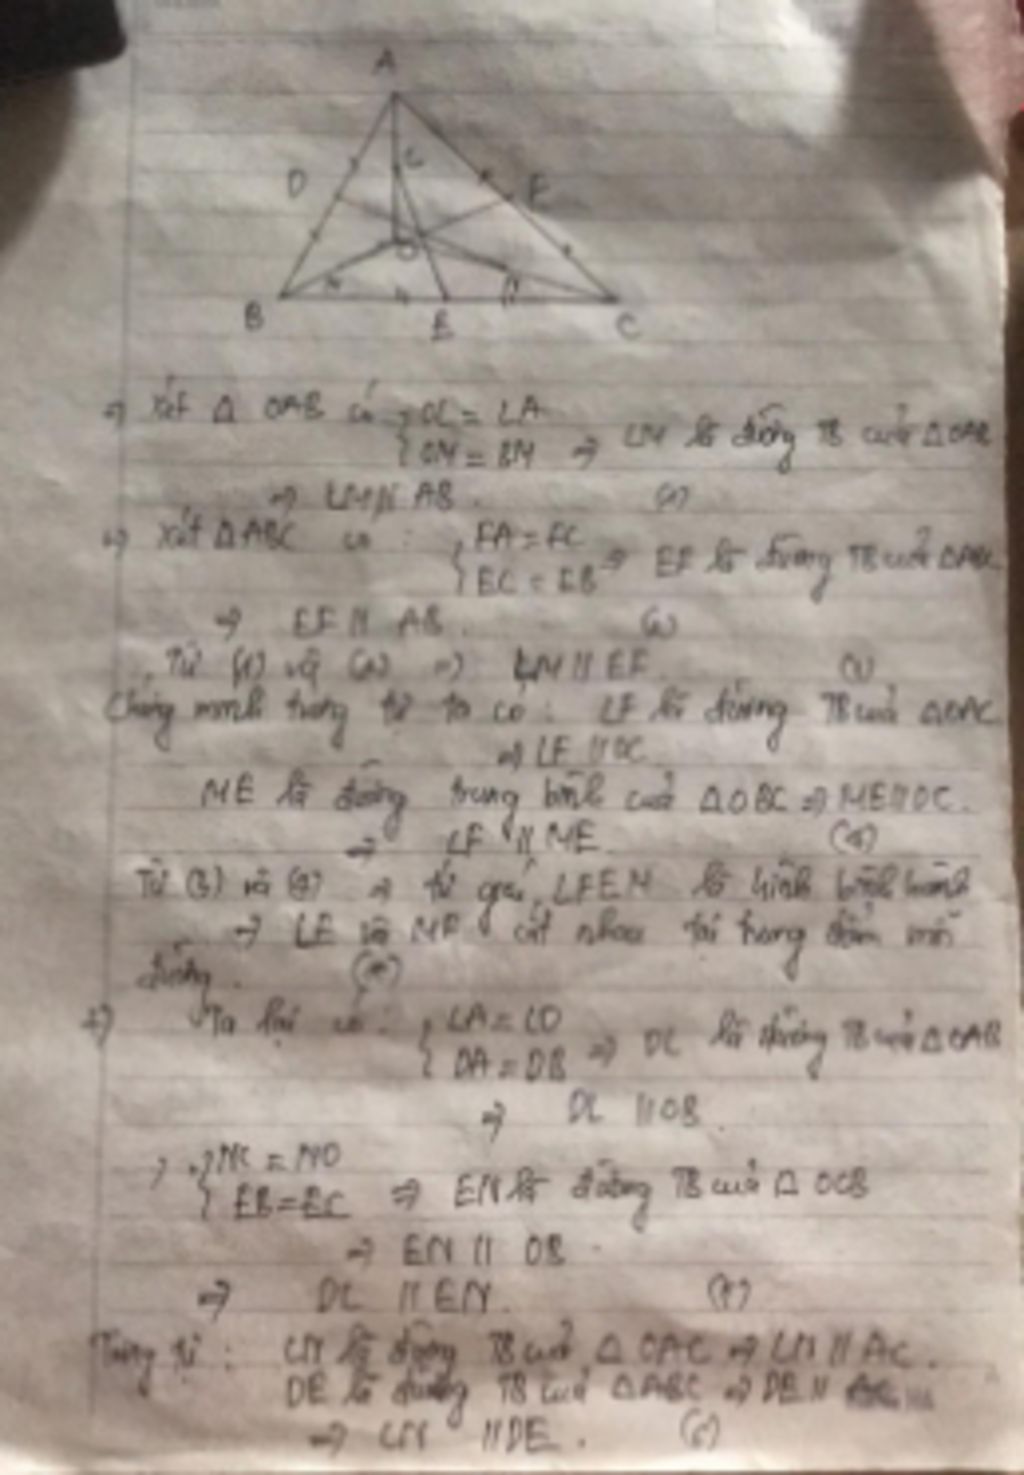 A
L
D
F
O
B
E
C
=> Xét Δ OAB có { OL = LA
{ OM = BM => LM là đường TB của Δ OAB
=> LM // AB. (1)
=> Xét Δ ABC có : { FA = FC
{ EC = EB => EF là đường TB của Δ ABC
=> EF // AB. (2)
Từ (1) và (2) => LM // EF. (3)
Chứng minh tương tự ta có : LF là đường TB của Δ OAC
=> LF // OC
ME là đường trung bình của Δ OBC => ME // OC.
=> LF // ME. (4)
Từ (3) và (4) => tứ giác LFEM là hình bình hành
=> LE và MF cắt nhau tại trung điểm mỗi
đường. (*)
+) Ta lại có : { LA = LO
{ DA = DB => DL là đường TB của Δ OAB
=> DL // OB.
{ NC = NO
{ EB = EC => EN là đường TB của Δ OCB
=> EN // OB.
=> DL // EN.
Tương tự : LN là đường TB của Δ OAC => LN // AC.
DE là đường TB của Δ ABC => DE //
=> LN // DE.